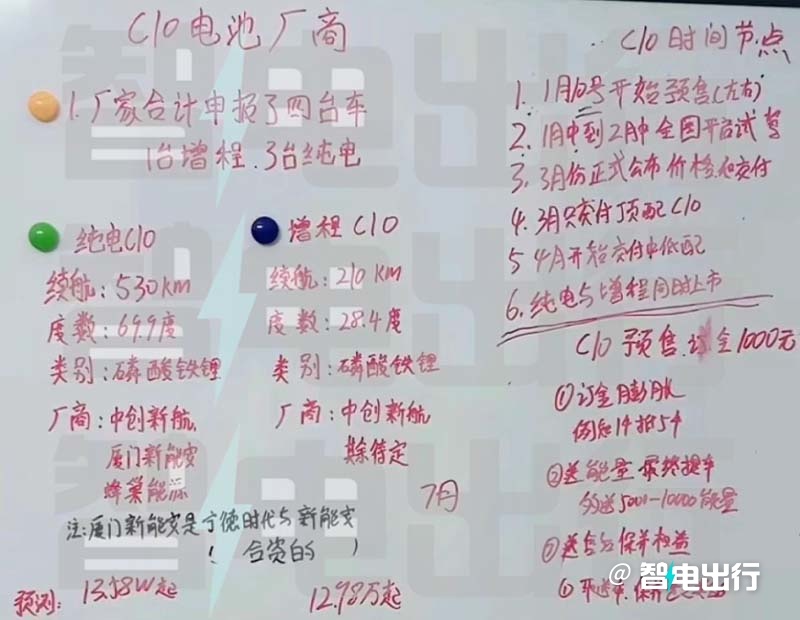 C10电池厂商
1.厂家合计申报了四台车
1台增程.3台纯电
纯电C10
续航:530KM
度数:69.9度
类别:磷酸铁锂
厂商:中创新航
厦门新能安
蜂巢能源
增程C10
续航:210KM
度数:28.4度
类别:磷酸铁锂
厂商:中创新航
其余待定
注:厦门新能安是宁德时代与新能安
(合资的)
预测:13.58W起
12.98万起
7月
C10时间节点
1. 1月10号开始预售(左右)
2. 1月中到2月中全国开启试驾
3. 3月份正式公布价格和交付
4. 3月只交付顶配C10
5 4月开始交付中低配
6. 纯电与增程同时上市
C10预售.订金1000元
①订金膨胀
例如1千抵5千
②送能量 最终提车
约送5000-10000能量
③送
保养权益
@智电出行
智电出行